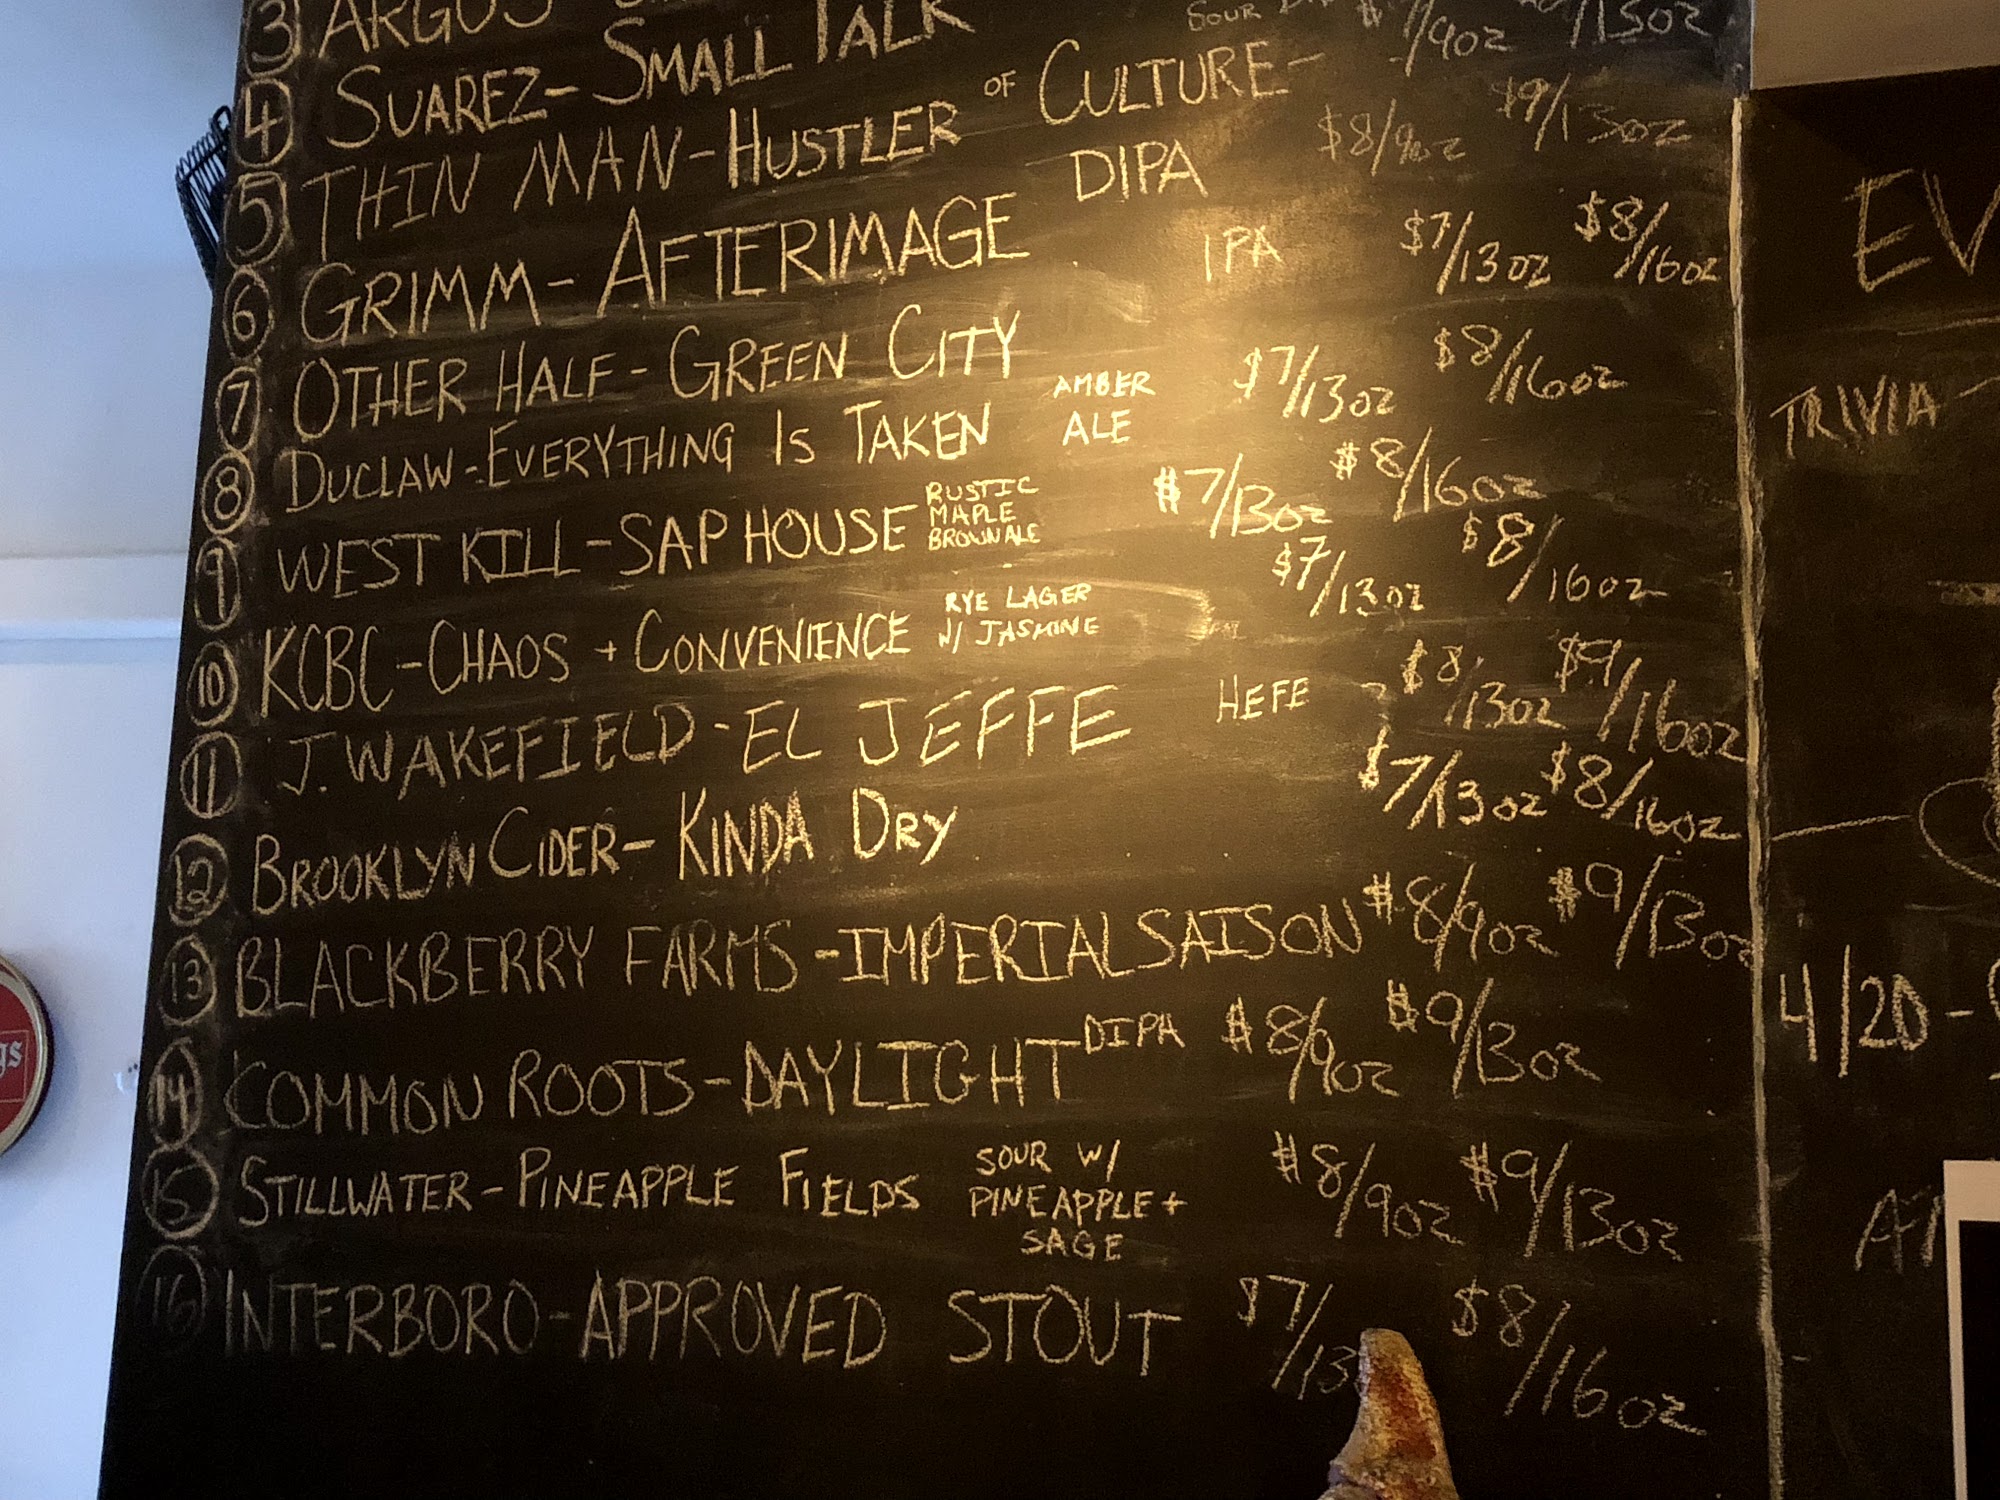 3 ARGUS
4 SUAREZ - SMALL TALK
5 THIN MAN - HUSTLER OF CULTURE - SOUR /9oz /13oz
6 GRIMM - AFTERIMAGE DIPA $8/9oz $9/13oz
7 OTHER HALF - GREEN CITY IPA $7/13oz $8/16oz
8 DUCLAW - EVERYTHING IS TAKEN AMBER ALE $7/13oz $8/16oz
9 WEST KILL - SAP HOUSE RUSTIC MAPLE BROWN ALE $7/13oz $8/16oz
10 KCBC - CHAOS + CONVENIENCE RYE LAGER W/ JASMINE $7/13oz $8/16oz
11 J. WAKEFIELD - EL JEFFE HEFE $8/13oz $9/16oz
12 BROOKLYN CIDER - KINDA DRY $7/13oz $8/16oz
13 BLACKBERRY FARMS - IMPERIAL SAISON $8/9oz $9/13oz
14 COMMON ROOTS - DAYLIGHT DIPA $8/9oz $9/13oz
15 STILLWATER - PINEAPPLE FIELDS SOUR W/ PINEAPPLE + SAGE $8/9oz $9/13oz
16 INTERBORO - APPROVED STOUT $7/13 $8/16oz
EV
TRIVIA -
4/20 -